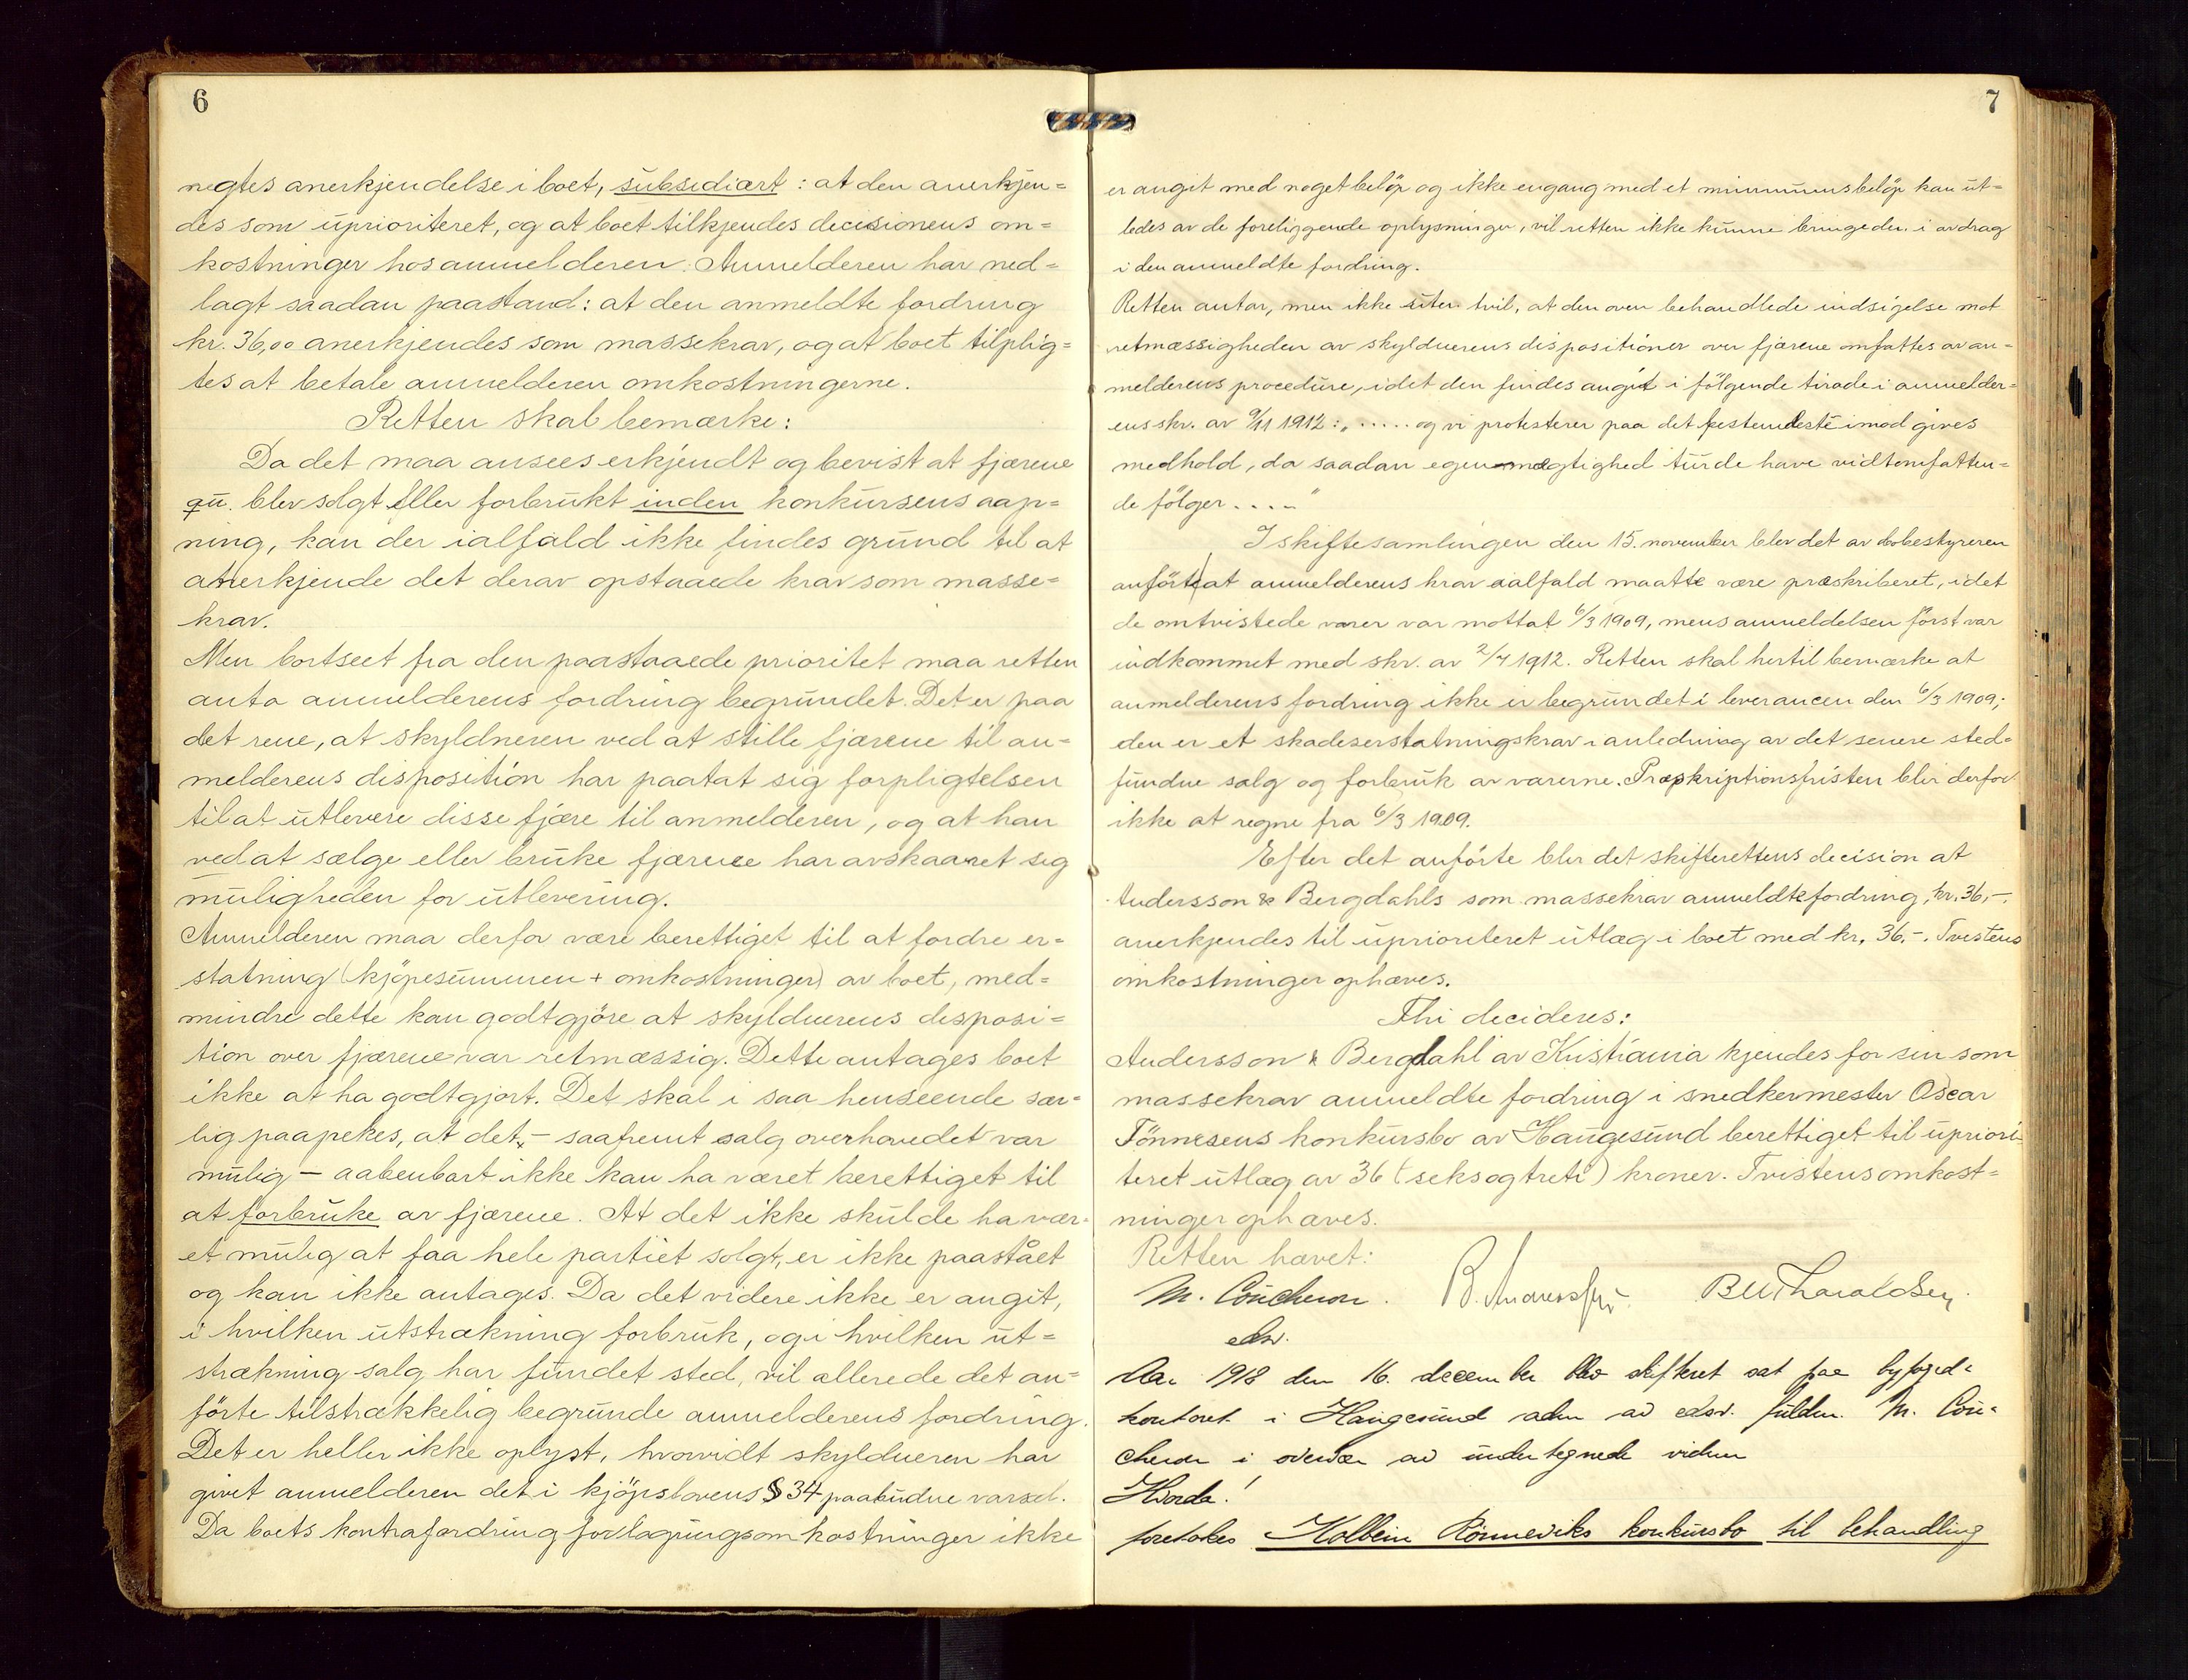 6
negtes anerkjendelse i boet, subsediært: at den anerkjen=
des som uprioriteret, og at boet tilkjendes decisionens om=
kostninger hos anmelderen. Anmelderen har ned=
lagt saadan paastand: at den anmeldte fordring
kr. 36,00 anerkjendes som massekrav, og at boet tilplig=
tes at betale anmelderen omkostningerne.
Retten skal bemærke:
Da det maa ansees erkjendt og bevist at fjærene
qu. blev solgt eller forbrukt inden konkursens aap=
ning, kan der ialfald ikke findes grund til at
anerkjende det derav opstaaede krav som masse=
krav.
Men bortseet fra den paastaaede prioritet maa retten
anta anmelderens fordring begrundet. Det er paa
det rene, at skyldneren ved at stille fjærene til an=
melderens disposition har paatat sig forpligtelsen
til at utlevere disse fjære til anmelderen, og at han
ved at sælge eller bruke fjærene har avskaaret sig
muligheden for utlevering.
Anmelderen maa derfor være berettiget til at fordre er=
statning (kjöpesummen + omkostninger) av boet, med=
mindre dette kan godtgjöre at skyldnerens disposi=
tion over fjærene var retmæssig. Dette antages boet
ikke at ha godtgjort. Det skal i saa henseende sær=
lig paapekes, at det, – saafremt salg overhovedet var
mulig – aabenbart ikke kan ha været berettiget til
at forbruke av fjærene. At det ikke skulde ha vær=
et mulig at faa hele partiet solgt, er ikke paastået
og kan ikke antages. Da det videre ikke er angit,
i hvilken utstrækning forbruk, og i hvilken ut=
strækning salg har fundet sted, vil allerede det an=
förte tilstrækkelig begrunde anmelderens fordring.
Det er heller ikke oplyst, hvorvidt skyldneren har
givet anmelderen det i kjöpslovens § 34 paabudne varsel.
Da boets kontrafordring for lagringsomkostninger ikke
7
er angit med noget belöp og ikke engang med et minimumsbelöp kan ut=
ledes av de foreliggende oplysninger, vil retten ikke kunne bringe den i avdrag
i den anmeldte fordring.
Retten antar, men ikke uten tvil, at den oven behandlede indsigelse mot
retmæssigheden av skyldnerens dispositioner over fjærene omfattes av an=
melderens procedure, idet den findes angit i fölgende tirade i anmelder=
ens skr. av 9/11 1912: „..... og vi protesterer paa det bestemteste imod gives
medhold, da saadan egenmægtighed turde have vidtomfatten=
de fölger....."
I skiftesamlingen den 15. november blev det av bobestyreren
anfört at anmelderens krav ialfald maatte være præskriberet, idet
de omtvistede varer var mottat 6/3 1909, mens anmeldelsen först var
indkommet med skr. av 2/4 1912. Retten skal hertil bemærke at
anmelderens fordring ikke er begrundet i leverancen den 6/3 1909;
den er et skadeserstatningskrav i anledning av det senere sted=
fundne salg og forbruk av varerne. Præskriptionsfristen blir derfor
ikke at regne fra 6/3 1909.
Efter det anförte blir det skifterettens decision at
Andersson & Bergdahls som massekrav anmeldte fordring, kr. 36,-.
anerkjendes til uprioriteret utlæg i boet med kr. 36,-. Tvistens
omkostninger ophæves.
Thi decideres:
Andersson & Bergdahl av Kristiania kjendes for sin som
massekrav anmeldte fordring i snedkermester Oscar
Tönnesens konkursbo av Haugesund berettiget til upriori=
teret utlæg av 36 (seksogtreti) kroner. Tvistens omkost=
ninger ophæves.
Retten hævet:
M. Coucheron.
edsv.
Aar 1918 den 16. december blev skifteret sat paa byfoged=
kontoret i Haugesund av edsv. fuldm. M. Cou=
cheron i overvær av undertegnede vidner
Hvorda!
foretokes Kolbein Rönneviks konkursbo til behandling